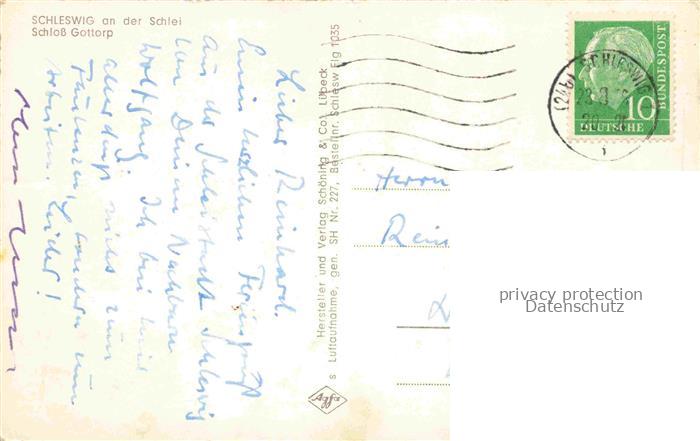 SCHLESWIG an der Schlei
Schloß Gottorp
Lieber Reinhard.
Einen herzlichen Feriengruß
aus der Schleistadt Schleswig
von Deinem Nachbarn
Wolfgang. Ich bin hier
allerdings nicht zum
Faulenzen, sondern zum
Arbeiten. Leider!
Hersteller und Verlag Schöning & Co., Lübeck
s Luftaufnahme, gen. SH Nr. 227, Bestellnr. Schlesw Flg 1035
Agfa
(24b) SCHLESWIG
DEUTSCHE
BUNDESPOST
10
Herrn
Rein
privacy protection
Datenschutz